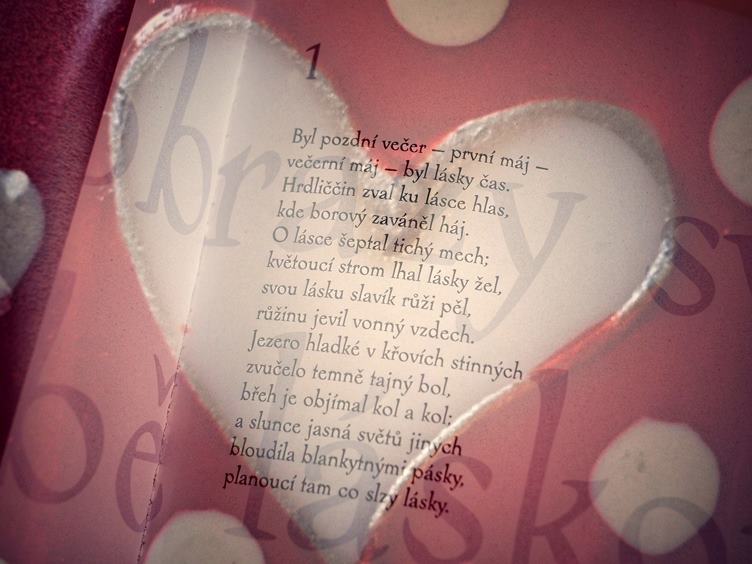 1
Byl pozdní večer – první máj –
večerní máj – byl lásky čas.
Hrdliččin zval ku lásce hlas,
kde borový zaváněl háj.
O lásce šeptal tichý mech;
květoucí strom lhal lásky žel,
svou lásku slavík růži pěl,
růžinu jevil vonný vzdech.
Jezero hladké v křovích stinných
zvučelo temně tajný bol,
břeh je objímal kol a kol;
a slunce jasná světů jiných
bloudila blankytnými pásky,
planoucí tam co slzy lásky.